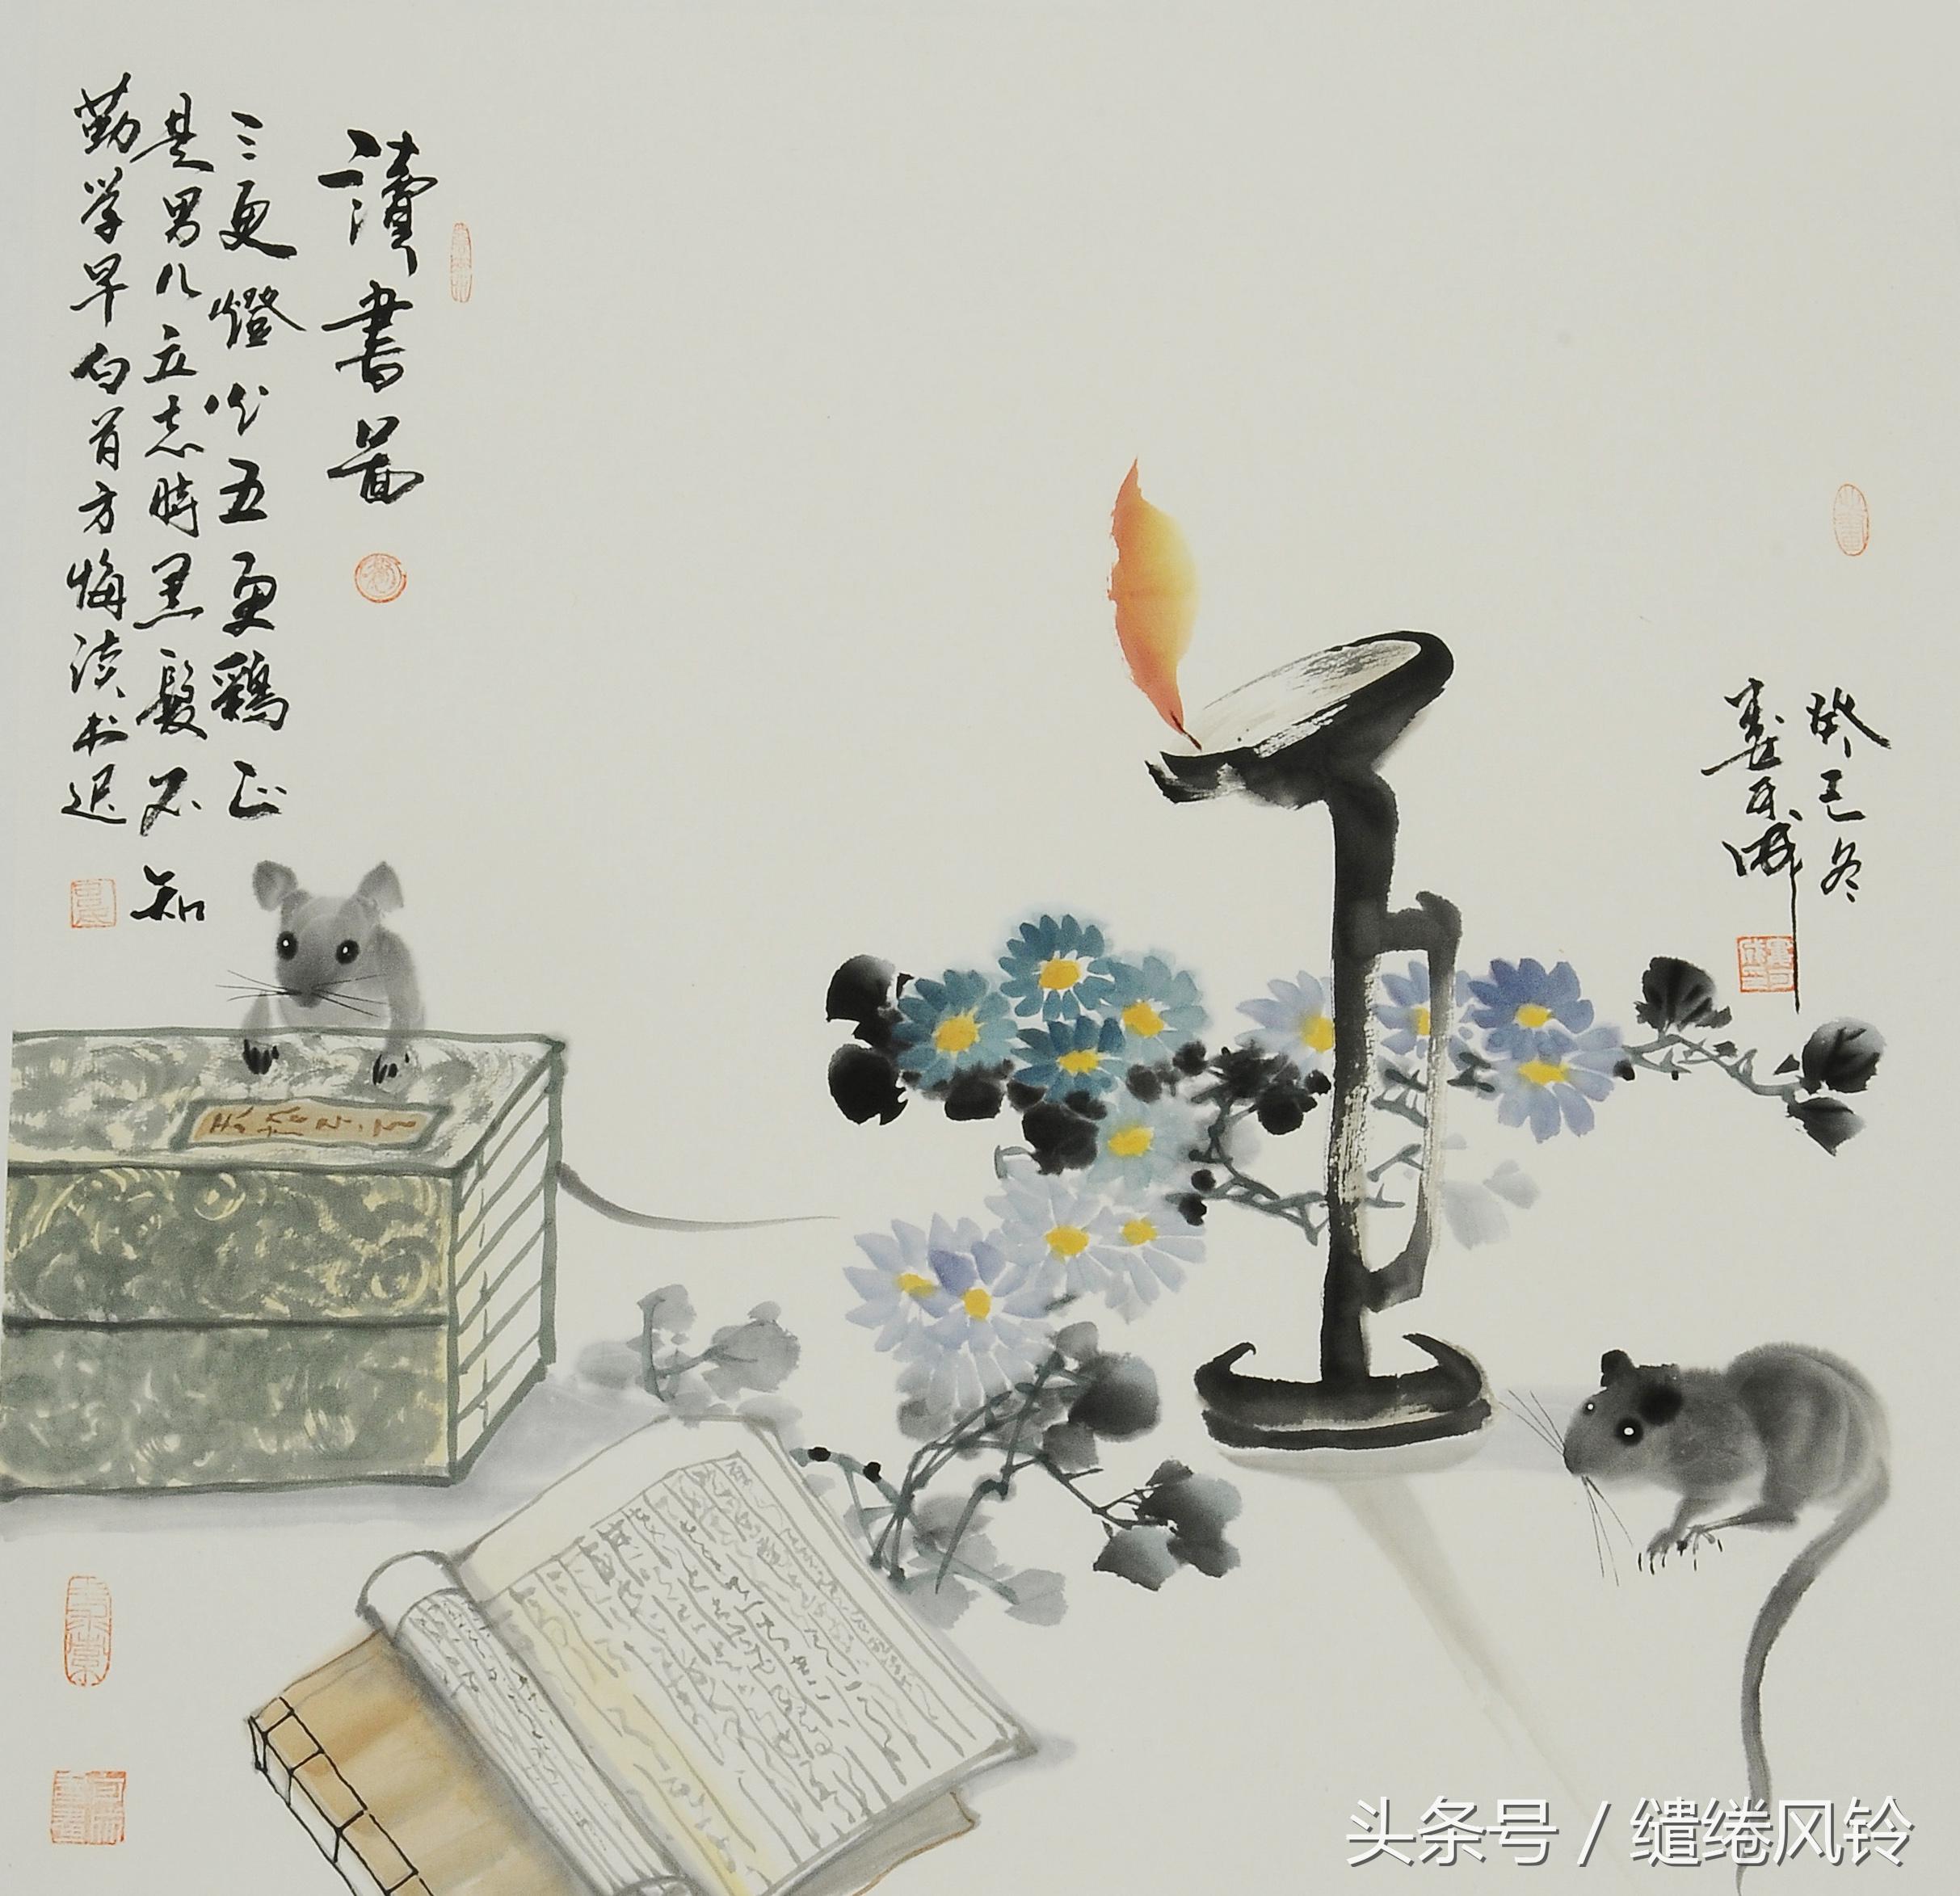 讀書啚
三更燈火五更鷄正
是男儿立志時黑髮不知
勤学早白首方悔读书迟
癸巳冬
头条号 / 缱绻风铃